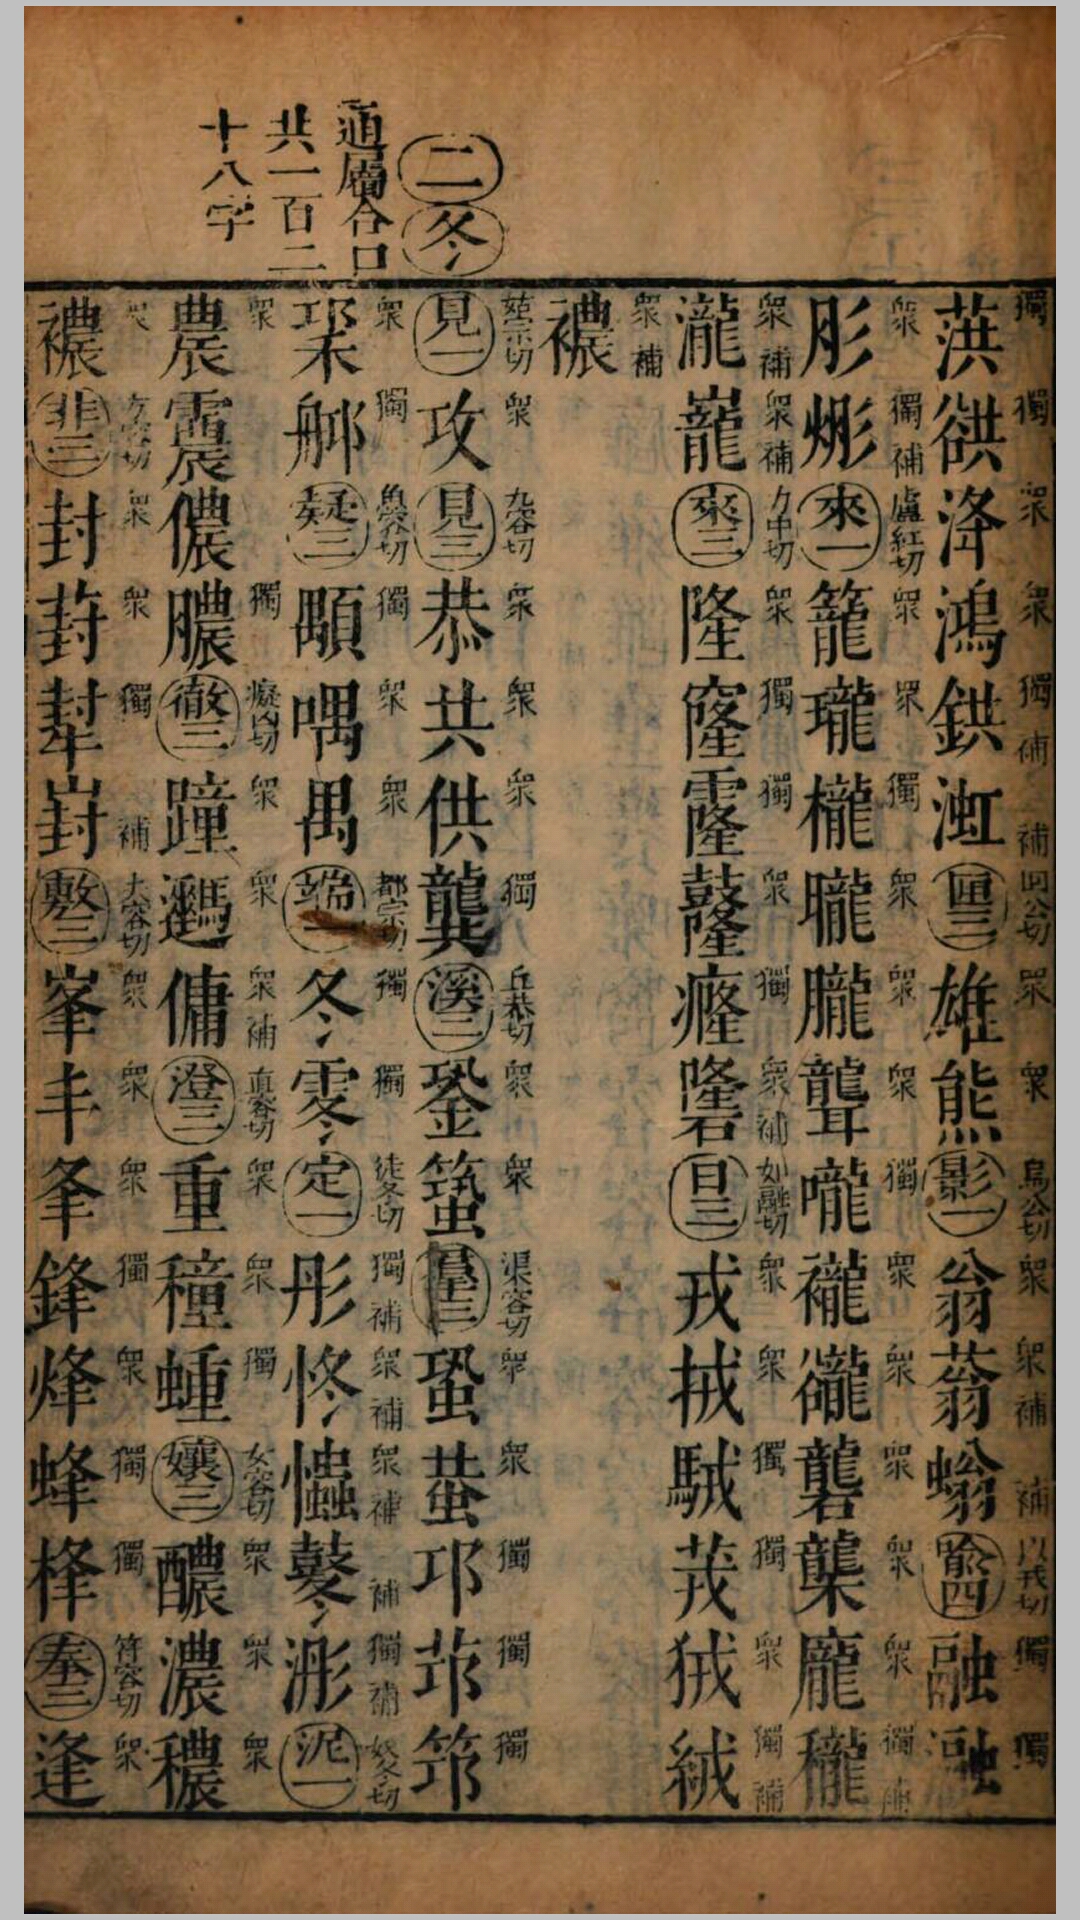 葓獨谼獨洚衆鴻衆鉷獨補渱補匣三田公切雄衆熊衆影一烏公切翁衆蓊衆補螉補喻四以戎切融獨瀜獨
肜衆烿獨補來一盧紅切籠衆瓏衆櫳獨曨衆朧衆聾衆嚨獨襱衆豅衆礱衆襲衆龐衆穲獨補
瀧衆補巃衆補來三力中切隆衆窿獨霳獨鼓衆癃獨礲衆補日三如融切戎衆㧡衆駥獨茙獨狨衆絨獨補
襛衆補
二冬
通層合口
共一百二
十八字
見一姑宗切攻衆見三九容切恭衆共衆供衆龔獨溪三丘恭切銎衆蛩衆羣三渠容切蛩衆蛬衆邛獨茆獨筇獨
桏衆䑸獨疑三魚容切顒獨喁衆禺衆端一都宗切冬獨䨦獨定一徒冬切彤獨補佟衆補爞衆補鼕補浵獨補泥一奴冬切
農衆䢉儂膿獨徹三癡凶切蹱衆䢱衆傭衆補澄三直容切重衆穜衆蝩獨孃三女容切醲衆濃衆穠衆
襛衆非三方容切封衆葑衆犎獨崶補敷三大容切峯衆丰衆夆衆鋒獨烽衆蜂獨桻獨奉三符容切逢衆